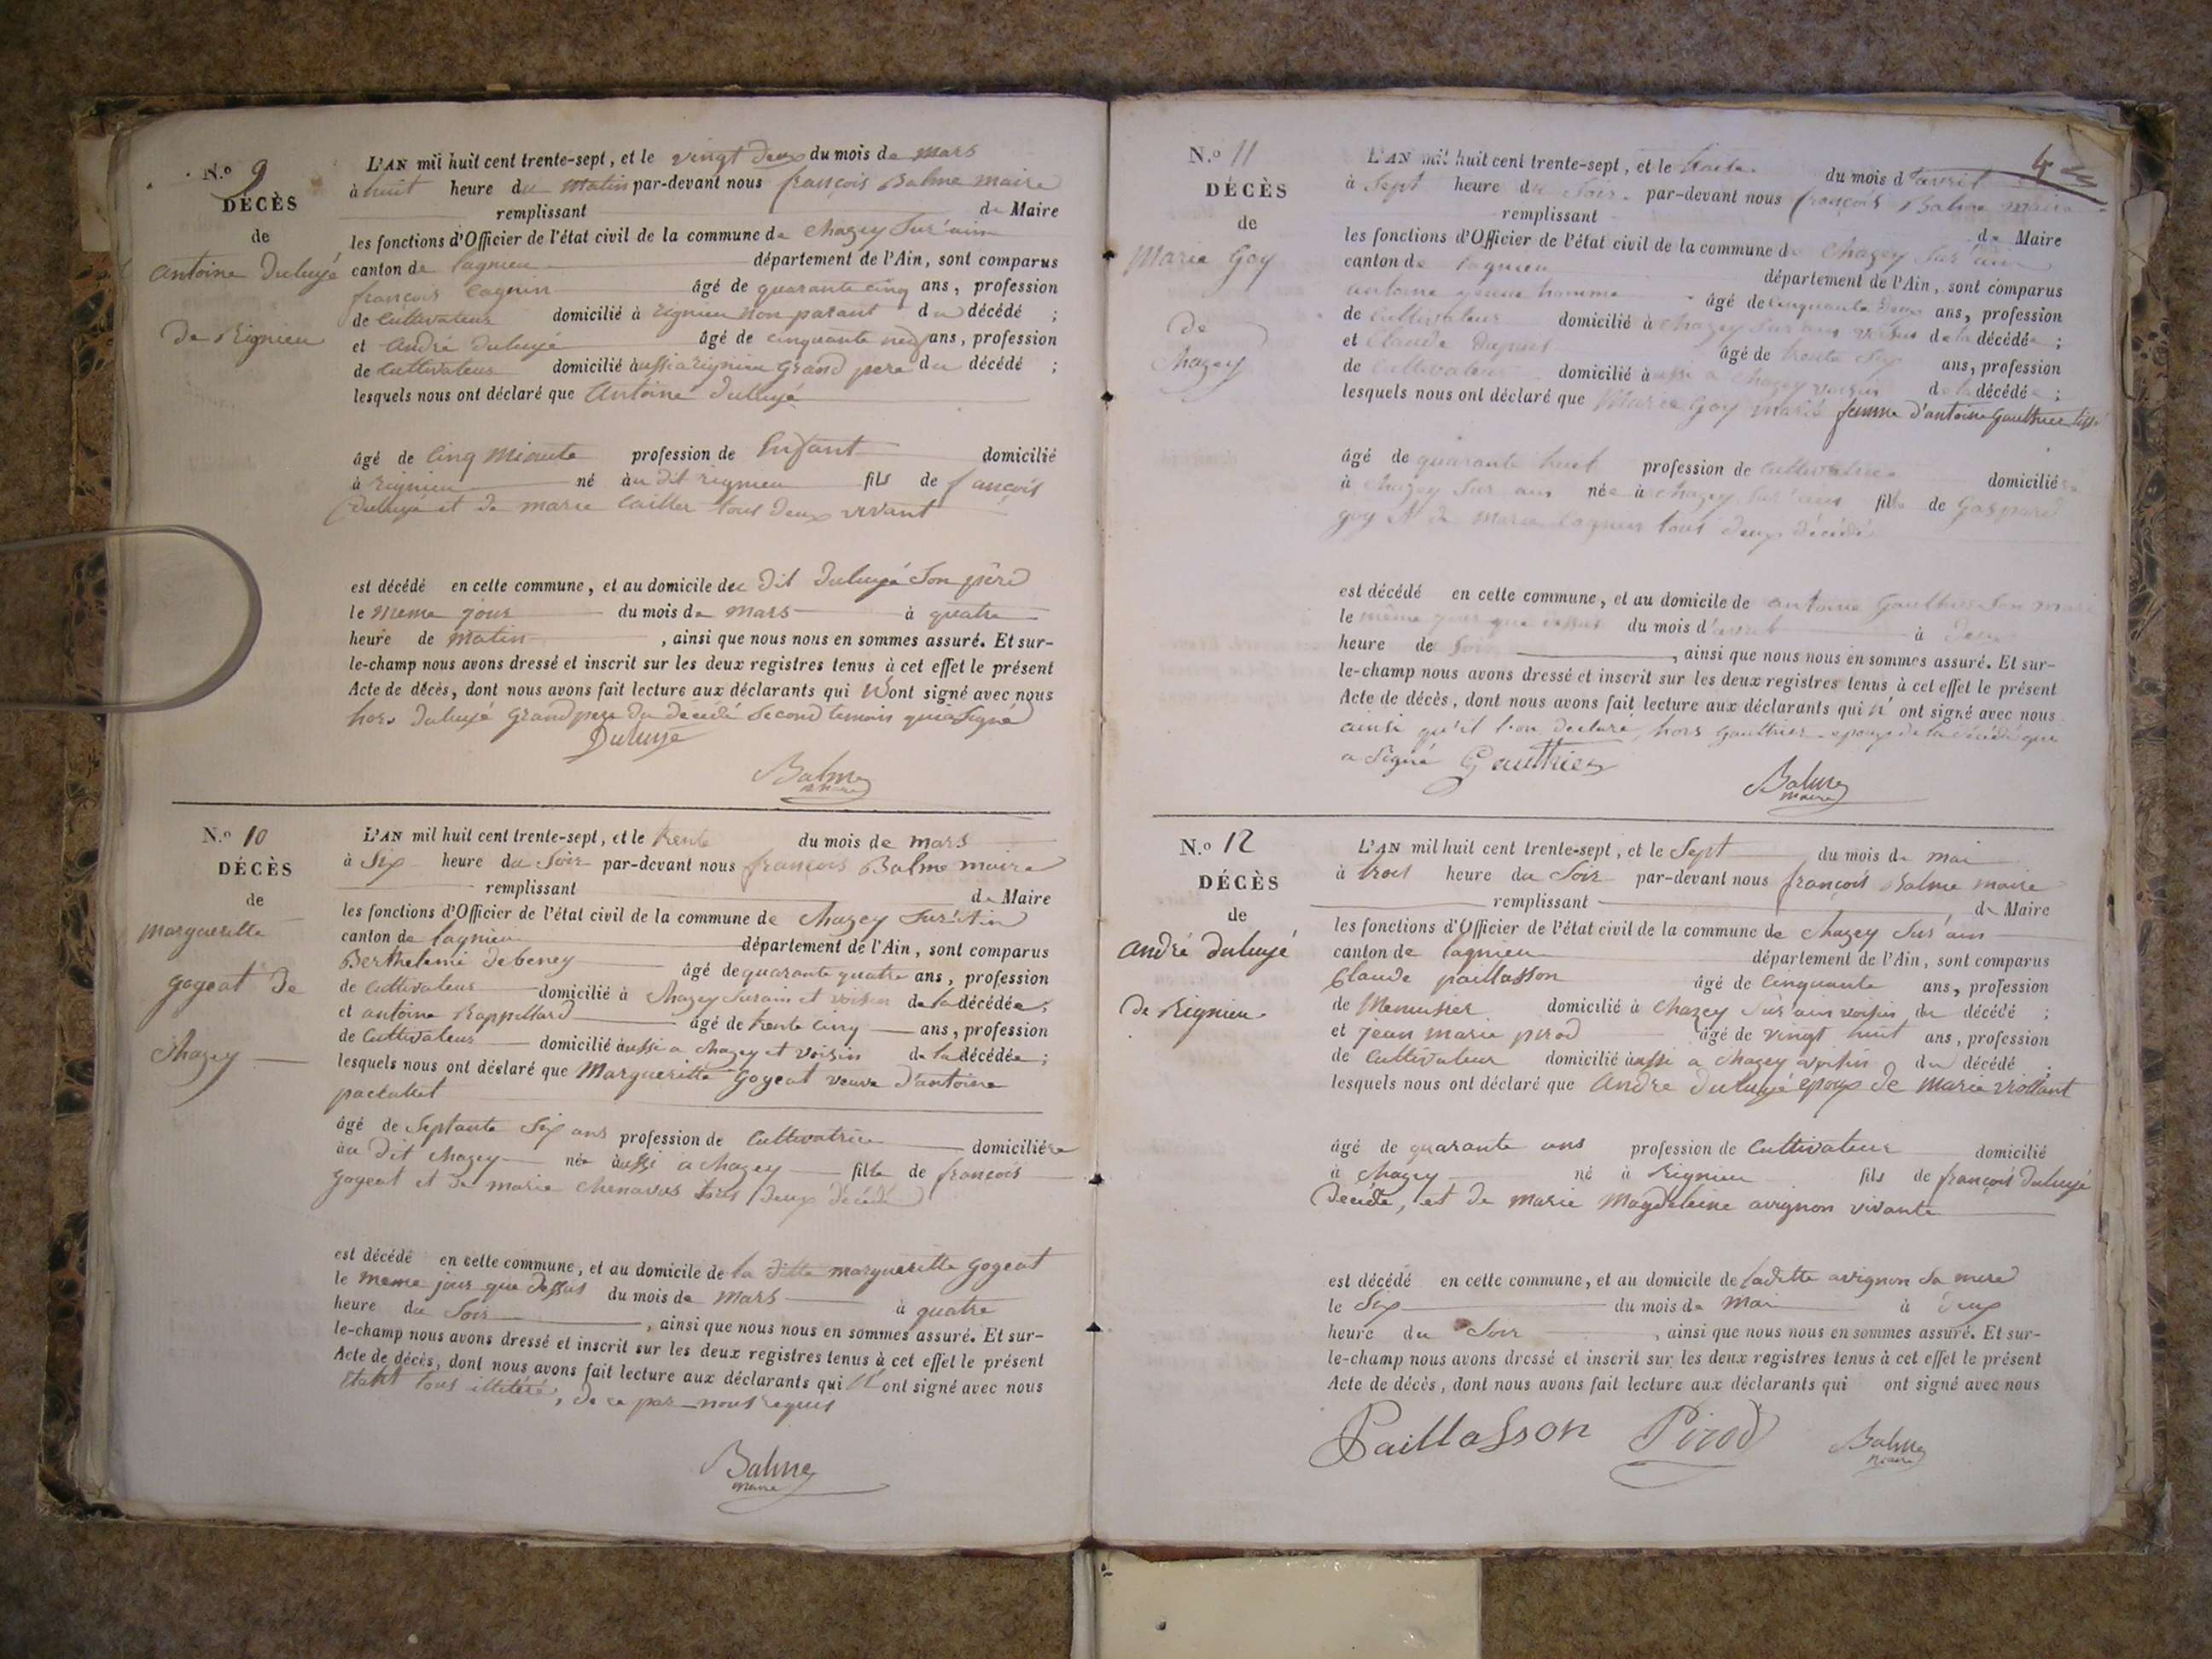 N.o 9
DÉCÈS
de
antoine Duluyé
de Rignieu
L'AN mil huit cent trente-sept, et le vingt deux du mois de mars
à huit heure du matin par-devant nous françois Balme maire
remplissant de Maire
les fonctions d'Officier de l'état civil de la commune de chazey Sur ain
canton de lagnieu département de l'Ain, sont comparus
françois cagnin âgé de quarante cinq ans, profession
de Cultivateur domicilié à Rignieu non parant du décédé ;
et andré duluyé âgé de cinquante neuf ans, profession
de Cultivateur domicilié àussi a rignieu grand pere du décédé ;
lesquels nous ont déclaré que Antoine duluyé
âgé de Cinq minute profession de Enfant domicilié
à rignieu né àu dit rignieu fils de fançois
Duluyé et de marie cailler tous deux vivant
est décédé en cette commune, et au domicile du dit duluyé Son père
le meme jour du mois de mars à quatre
heure de matin , ainsi que nous nous en sommes assuré. Et sur-
le-champ nous avons dressé et inscrit sur les deux registres tenus à cet effet le présent
Acte de décès, dont nous avons fait lecture aux déclarants qui n'ont signé avec nous
hors duluyé grand pere du décédé second temoin qui a signé
Duluyé
Balme
maire
N.o 10
DÉCÈS
de
margueritte
gogeat de
chazey
L'AN mil huit cent trente-sept, et le trente du mois de mars
à Six heure du Soir par-devant nous françois Balme maire
remplissant de Maire
les fonctions d'Officier de l'état civil de la commune de chazey Sur Ain
canton de lagnieu département de l'Ain, sont comparus
Berthelemi debeney âgé de quarante quatre ans, profession
de Cultivateur domicilié à chazey Sur ain et voisin de la décédée ;
et antoine Rappillard âgé de trente cinq ans, profession
de Cultivateur domicilié àussi a chazey et voisin de la décédée ;
lesquels nous ont déclaré que Marguerittte gogeat veuve d'antoine
pacallet
âgé de Septante Six ans profession de Cultivatrice domiciliée
àu dit chazey née àussi a chazey fille de françois
gogeat et de marie chenavas tous deux décédé
est décédé en cette commune, et au domicile de la ditte marguerittte gogeat
le meme jour que dessus du mois de mars à quatre
heure du Soir , ainsi que nous nous en sommes assuré. Et sur-
le-champ nous avons dressé et inscrit sur les deux registres tenus à cet effet le présent
Acte de décès, dont nous avons fait lecture aux déclarants qui n'ont signé avec nous
étant tous illitéré, de ce par nous requis
Balme
maire
N.o 11
DÉCÈS
de
Marie Goy
de
chazey
4
L'AN mil huit cent trente-sept, et le du mois d'avril
à Sept heure du Soir par-devant nous françois Balme maire
remplissant de Maire
les fonctions d'Officier de l'état civil de la commune de chazey Sur ain
canton de lagnieu département de l'Ain, sont comparus
antoine jeune homme âgé de cinquante deux ans, profession
de Cultivateur domicilié à chazey Sur ain voisin de la décédée ;
et Claude dupuis âgé de trente Six ans, profession
de Cultivateur domicilié àussi a chazey voisin de la décédée ;
lesquels nous ont déclaré que Marie Goy femme d'antoine Gauthier
âgé de quarante huit profession de Cultivatrice domiciliée
à chazey Sur ain née à chazey Sur ain fille de Gaspard
goy et de marie cagnin tous deux décédé
est décédé en cette commune, et au domicile de antoine Gauthier Son mari
le même jour que dessus du mois d'avril à deux
heure de Soir , ainsi que nous nous en sommes assuré. Et sur-
le-champ nous avons dressé et inscrit sur les deux registres tenus à cet effet le présent
Acte de décès, dont nous avons fait lecture aux déclarants qui n'ont signé avec nous
ainsi qu'il l'on declaré, hors Gauthier epoux de la décédé qui
a Signé Gauthier
Balme
maire
N.o 12
DÉCÈS
de
andré duluyé
de Rignieu
L'AN mil huit cent trente-sept, et le Sept du mois de mai
à trois heure du Soir par-devant nous françois Balme maire
remplissant de Maire
les fonctions d'Officier de l'état civil de la commune de chazey Sur ain
canton de lagnieu département de l'Ain, sont comparus
Claude paillasson âgé de Cinquante ans, profession
de Menusier domicilié à chazey Sur ain voisin du décédé ;
et jean marie pirod âgé de vingt huit ans, profession
de Cultivateur domicilié àussi a chazey voisin du décédé ;
lesquels nous ont déclaré que André duluyé epoux de marie viollant
âgé de quarante ans profession de Cultivateur domicilié
à chazey né à Rignieu fils de françois duluyé
décédé, et de marie Magdeleine avignon vivante
est décédé en cette commune, et au domicile de laditte avignon Sa mere
le Six du mois de mai à deux
heure du Soir , ainsi que nous nous en sommes assuré. Et sur-
le-champ nous avons dressé et inscrit sur les deux registres tenus à cet effet le présent
Acte de décès, dont nous avons fait lecture aux déclarants qui ont signé avec nous
Paillasson Pirod Balme
maire